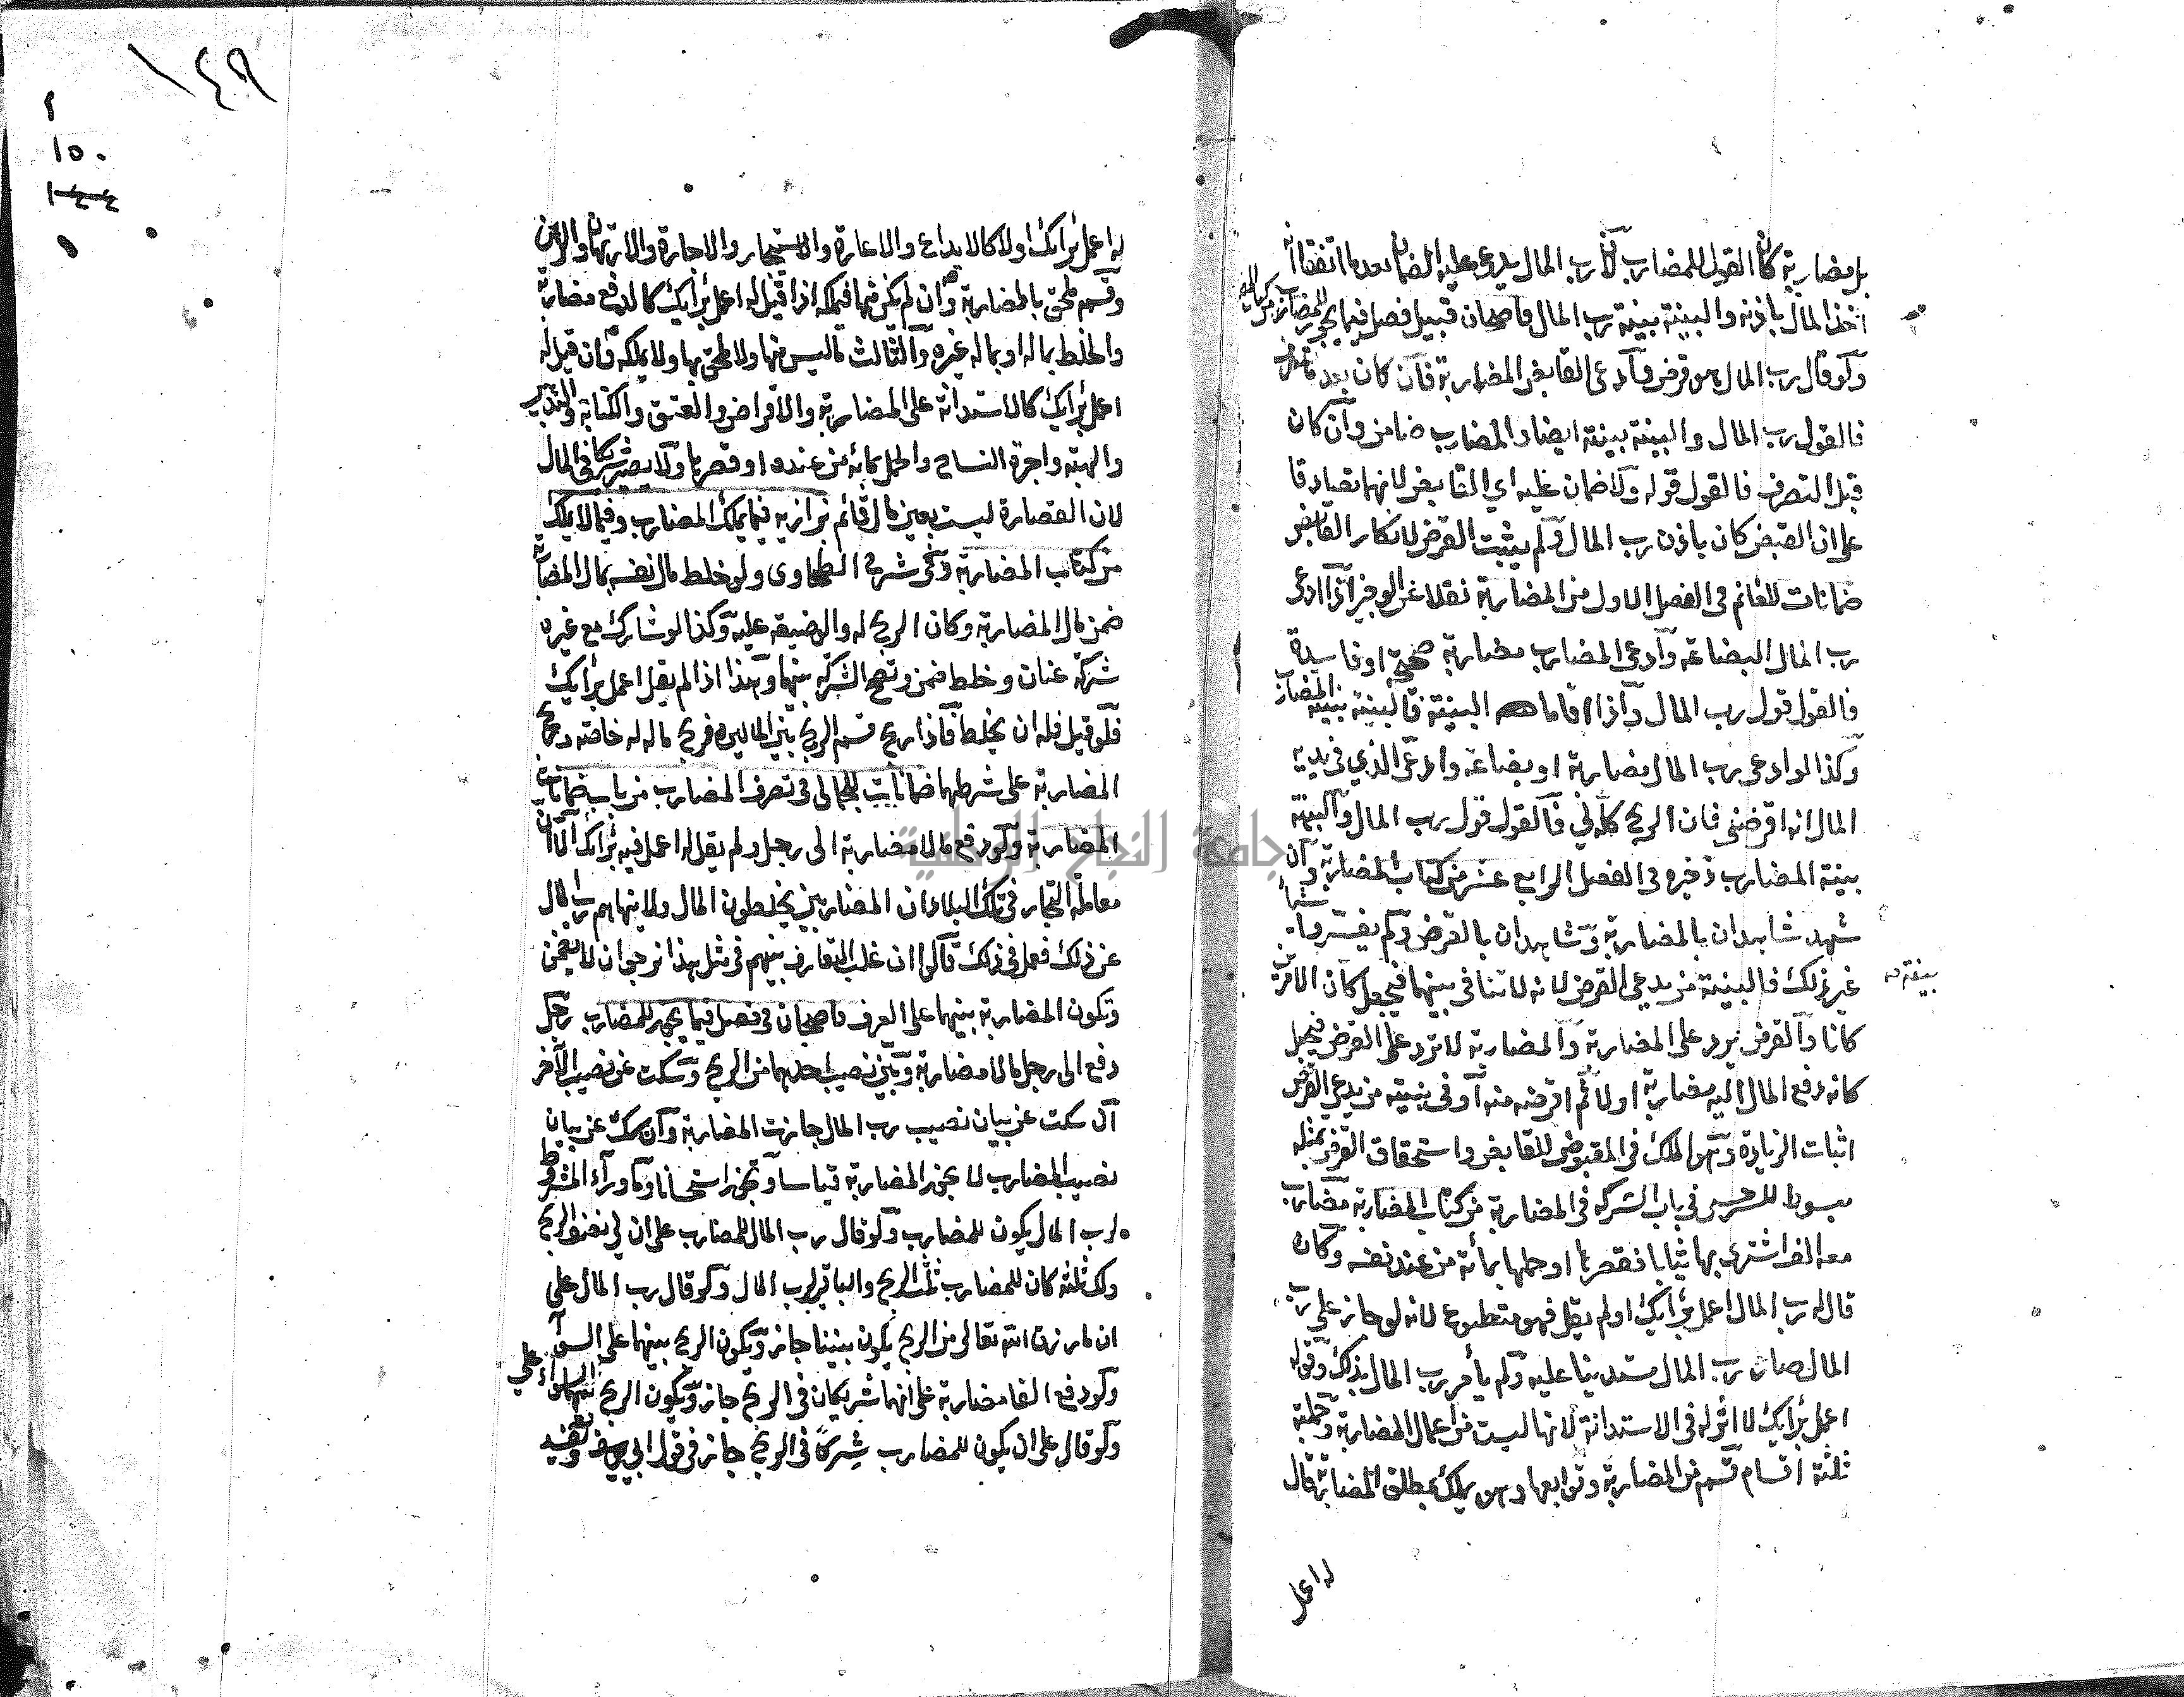 بل مضاربة كان القول للمضارب لان رب المال يدعى عليه الضمان بعد ما اتفقا انه
اخذ المال باذنه والبينة بينة رب المال قاضيخان قبيل فصل فيما يجوز للمضارب
ولو قال رب المال هو قرض وادعى القابض المضاربة فان كان بعد ما تصرف
فالقول رب المال والبينة بينته ايضا والمضارب ضامن وان كان
قبل التصرف فالقول قوله ولا ضمان عليه اي القابض لانهما تصادقا
على ان القبض كان باذن رب المال ولم يثبت القرض لانكار القابض
ضمانات للغانم فى الفصل الاول من المضاربة نقلا عن الوجيز اذا ادعى
رب المال البضاعة وادعى المضارب مضاربة صحيحة او فاسدة
فالقول قول رب المال واذا اقاما البينة فالبينة بينة المضارب
وكذا لو ادعى رب المال مضاربة او بضاعة وادعى الذي فى يديه
المال انه اقرضنى فان الربح كله لي فالقول قول رب المال والبينة
بينة المضارب ذخيره فى الفصل الرابع عشر من كتاب المضاربة وان
شهد شاهدان بالمضاربة وشاهدان بالقرض ولم يفسروا شيئا
غير ذلك فالبينة من يدعي القرض لانه لا تنافى بينهما فيجعل كأن الامرين
بينة
كانا والقرض يرد على المضاربة والمضاربة لا ترد على القرض فيجعل
كانه دفع المال اليه مضاربة اولا ثم اقرضه منه او فى بينة من يدعي القرض
اثبات الزيادة وهو الملك فى المقبوض للقابض واستحقاق القرض بمثله
مبسوط للسرخسى فى باب الشركه فى المضاربة من كتاب المضاربة مضارب
معه الف اشترى بها ثيابا فقصرها او حملها بمأته من عند نفسه وكان
قال له رب المال اعمل برايك او لم يقل فهو متطوع لانه لو جاز على رب
المال صار رب المال مستدينا عليه ولم يأمر رب المال بذلك وقوله
اعمل برايك لا اثر له فى الاستدانة لانها ليست من اعمال المضاربة وجملته
ثلثة اقسام قسم من المضاربة وتوابعها وهو يملك بمطلق المضاربة قال
له اعمل
١٤٩
١٥٠
له اعمل برايك اولا كالايداع والاعارة والاستيجار والاجارة والارتهان والرهن
وقسم ملحق بالمضاربة وان لم يكن منها فيملكه اذا قيل له اعمل برايك كالدفع مضاربة
والخلط بماله او بمال غيره والثالث ما ليس منها ولا ملحق بها ولا يملكه وان قيل له
اعمل برايك كالاستدانة على المضاربة والاقراض والعتق والكتابة والتدبير
والهبة واجرة النساج والحمل بمائه من عنده او قصرها ولا يصير شريكا فى المال
لان القصارة ليست بعين مال قائم بزازيه فيما يملك المضارب وفيما لا يملك
من كتاب المضاربة وفى شرح الطحاوى ولو خلط مال نفسه بمال المضاربة
ضمن مال المضاربة وكان الربح له والوضيعة عليه وكذا لو شارك مع غيره
شركة عنان وخلط ضمن وتصح الشركة بينهما وهذا اذا لم يقل اعمل برايك
فلو قيل فله ان يخلط فاذا ربح قسم الربح بين المالين فربح ماله له خاصة وربح
المضاربة على شرطهما ضمانات للجمالى فى تصرف المضارب من باب ضمانات
المضاربة ولو دفع مالا مضاربة الى رجل ولم يقل له اعمل فيه برأيك الا ان
معاملة التجار فى تلك البلاد ان المضاربين يخلطون المال ولا ينهاهم رب المال
عن ذلك فعمل فى ذلك قالوا ان غلب التعارف بينهم فى مثل هذا نرجو ان لا يضمن
وتكون المضاربة بينهما على العرف قاضيخان فى فصل فيما يجوز للمضارب رجل
دفع الى رجل مالا مضاربة وبين نصيب احدهما من الربح وسكت عن نصيب الآخر
ان سكت عن بيان نصيب رب المال جازت المضاربة وان سكت عن بيان
نصيب المضارب لا يجوز المضاربة قياسا وتجوز استحسانا وما وراء المشروط
لرب المال يكون للمضارب ولو قال رب المال للمضارب على ان لى نصف الربح
ولك ثلثه كان للمضارب ثلث الربح والباقى لرب المال ولو قال رب المال على
ان ما رزق الله تعالى من الربح يكون بيننا جاز ويكون الربح بينهما على السواء
ولو دفع الفا مضاربة على انهما شريكان فى الربح جاز ويكون الربح بينهما على السواء
ولو قال على ان يكون للمضارب شركا فى الربح جاز فى قول ابى يوسف
جامعة النجاح الوطنية